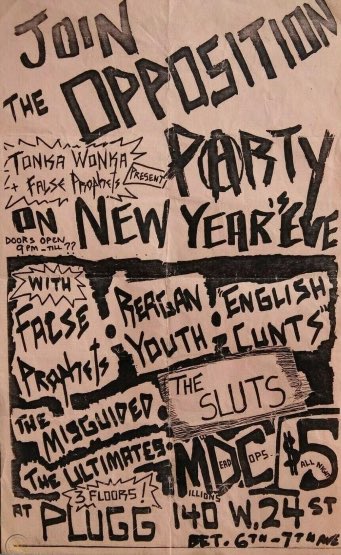 JOIN
THE OPPOSITION
TONKA WONKA
+ FALSE PROPHETS
PRESENT
PARTY
ON NEW YEAR'S EVE
DOORS OPEN
9PM - TILL??
WITH
FALSE
PROPHETS
REAGAN
YOUTH
"ENGLISH
CUNTS"
THE
SLUTS
THE
MISGUIDED
THE ULTIMATES
MILLIONS DEAD COPS
$5
ALL NIGHT
3 FLOORS!
AT PLUGG
140 W. 24 ST
BET. 6TH-7TH AVE